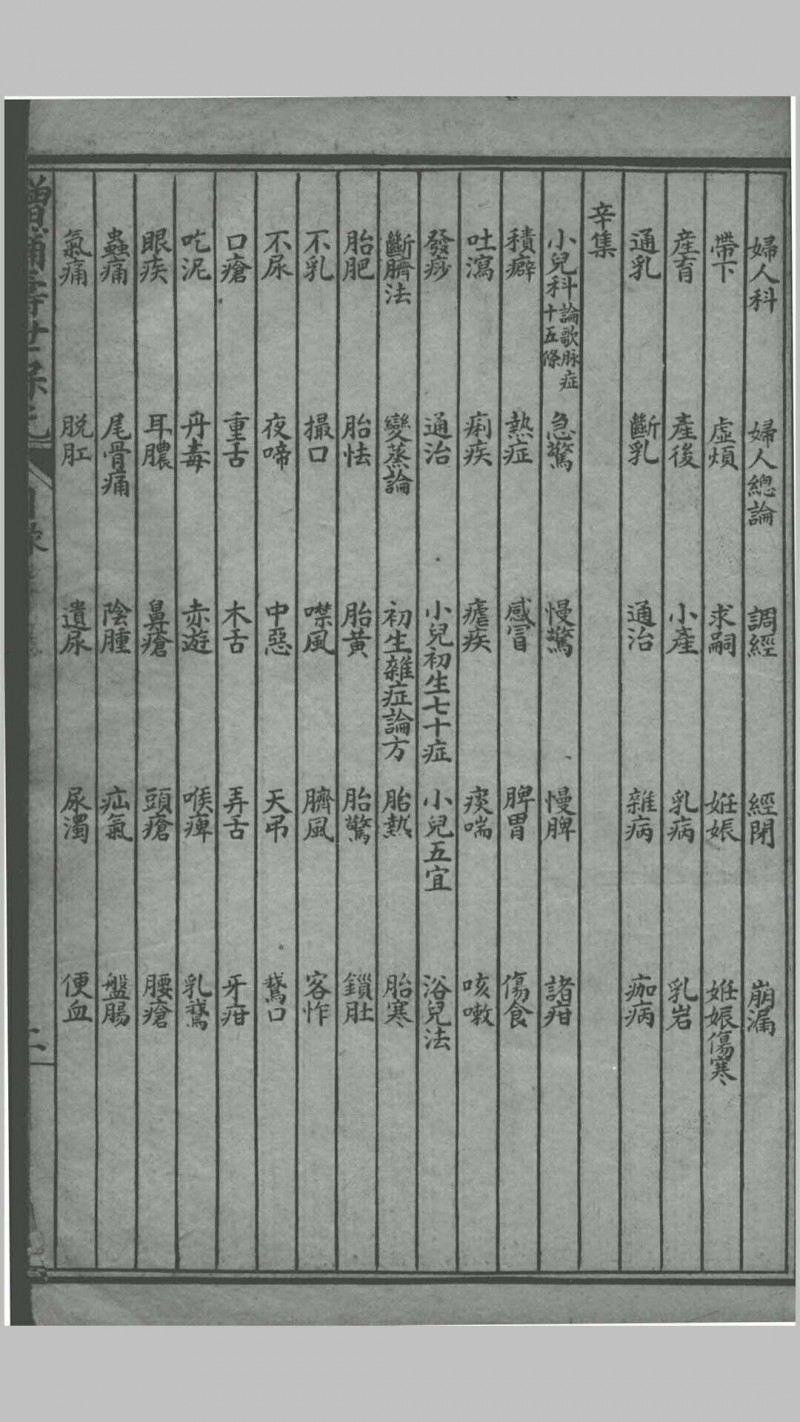 婦人科 婦人總論 調經 經閉 崩漏
帶下 虛煩 求嗣 姙娠 姙娠傷寒
産育 產後 小產 乳病 乳岩
通乳 斷乳 通治 雜病 痂病
辛集
小兒科 論歌脉症十五條 急驚 慢驚 慢脾 諸疳
積癖 熱症 感冒 脾胃 傷食
吐瀉 痢疾 瘧疾 痰喘 咳嗽
發痧 通治 小兒初生七十症 小兒五宜 浴兒法
斷臍法 變蒸論 初生雜症論方 胎熱 胎寒
胎肥 胎怯 胎黃 胎驚 鎖肚
不乳 撮口 噤風 臍風 客忤
不尿 夜啼 中惡 天弔 鵞口
口瘡 重舌 木舌 弄舌 牙疳
吃泥 丹毒 赤遊 喉痺 乳鵞
眼疾 耳膿 鼻瘡 頭瘡 腰瘡
蟲痛 尾骨痛 陰腫 疝氣 盤腸
氣痛 脱肛 遺尿 尿濁 便血
增補壽世保元 目錄 二